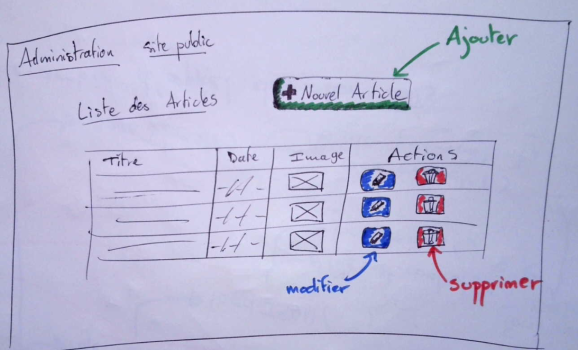 Administration site public
Ajouter
+ Nouvel Article
Liste des Articles
Titre Date Image Actions
-/-/-
-/-/-
-/-/-
modifier supprimer